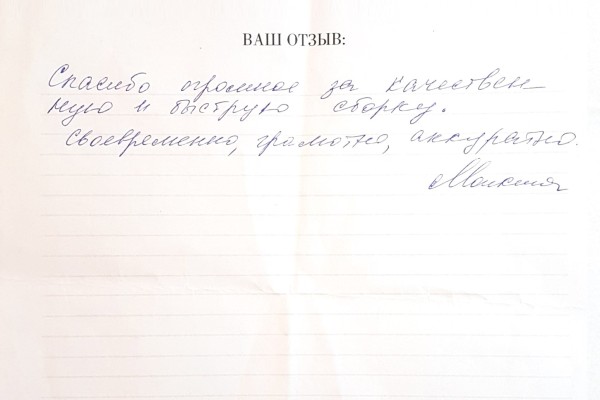 ВАШ ОТЗЫВ:
Спасибо огромное за качествен
ную и быструю сборку.
Своевременно, грамотно, аккуратно.